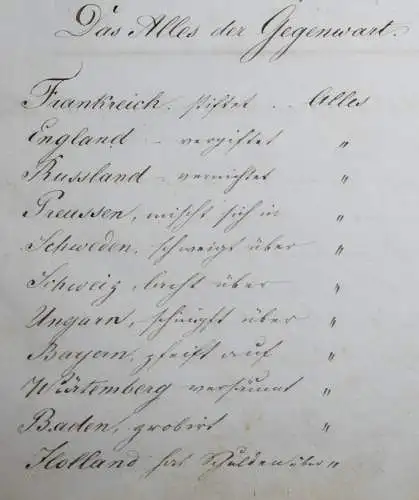 Das Alles der Gegenwart.
Frankreich. stiftet .. Alles
England - vergiftet "
Russland - vernichtet "
Preussen, mischt sich in "
Schweden, schweigt über "
Schweiz, lacht über "
Ungarn, schimpft über "
Bayern, pfeift auf "
Würtemberg versäumt "
Baden, probirt "
Holland hat Schulden über "